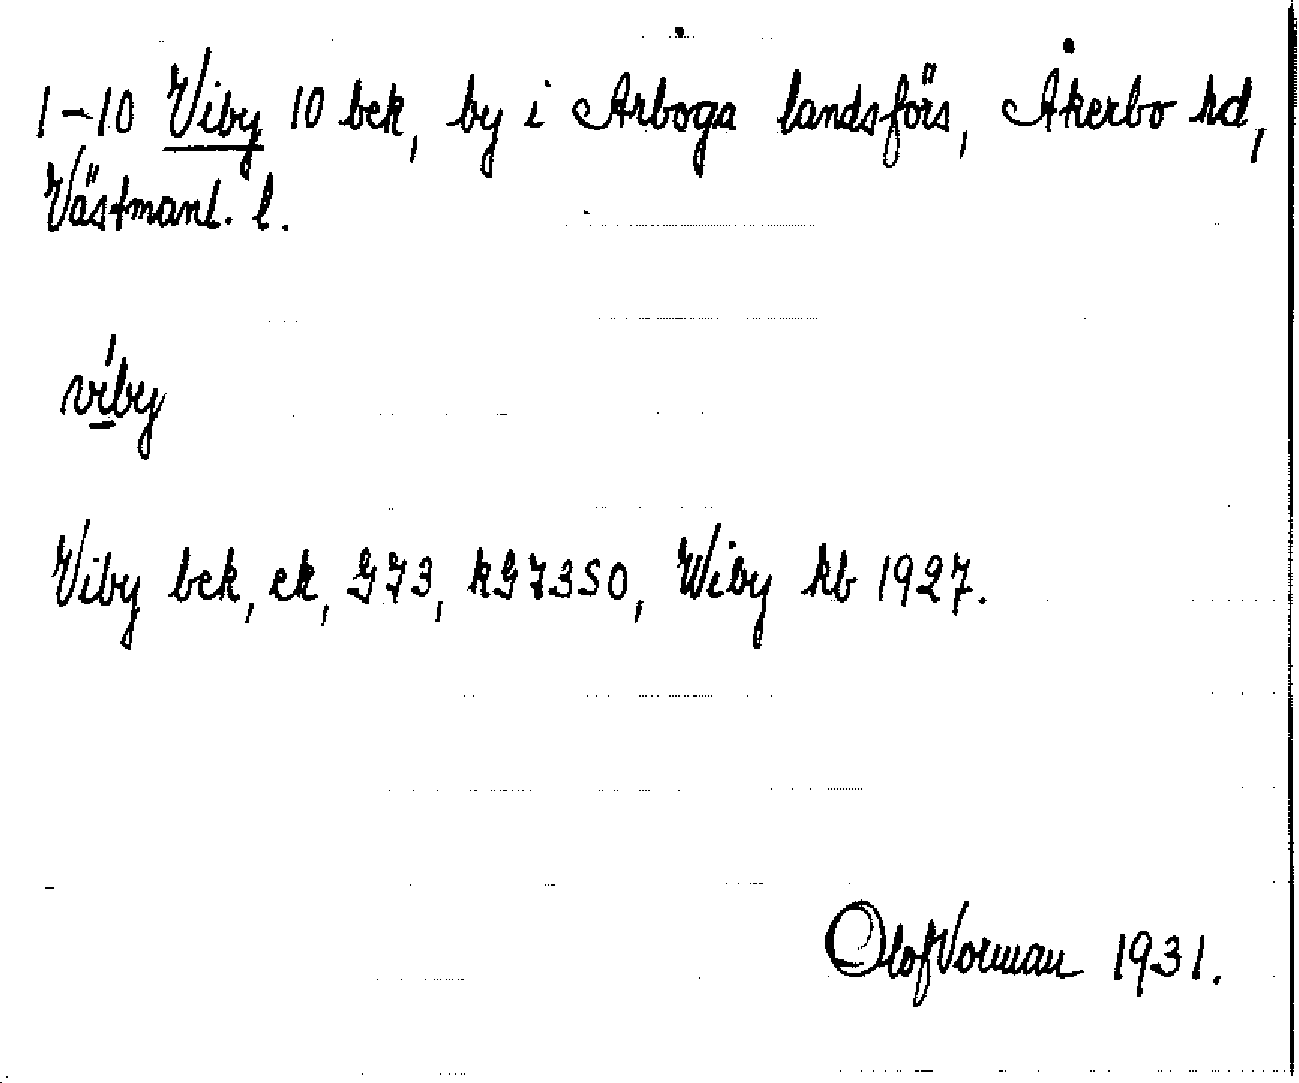 1-10 Viby 10 bek, by i Arboga landsförs, Åkerbo hd,
Västmanl. l.
viby
Viby bek, ek, G73, kG73SO, Wiby kb 1927.
Olof Vorman 1931.